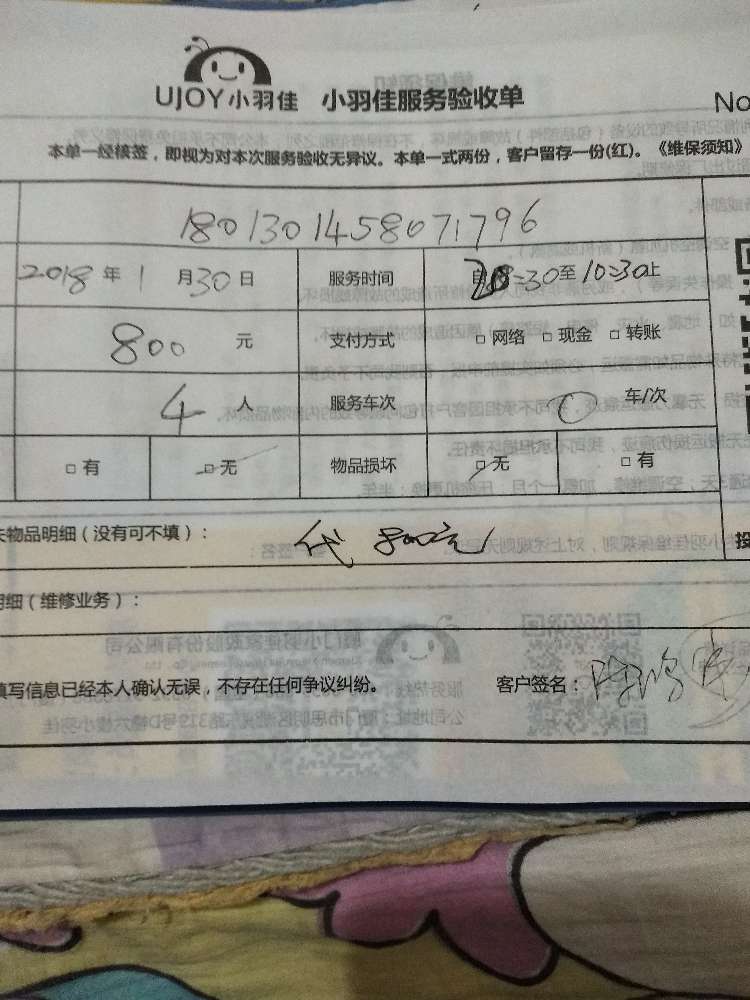 UJOY小羽佳 小羽佳服务验收单
No
本单一经核签，即视为对本次服务验收无异议。本单一式两份，客户留存一份(红)。《维保须知》
1801301458071796
2018年1月30日 服务时间 自8:30至10:30止
800元 支付方式 □网络 □现金 □转账
4人 服务车次 0车/次
□有 □无 物品损坏 □无 □有
失物品明细（没有可不填）： 代 800元
明细（维修业务）：
填写信息已经本人确认无误，不存在任何争议纠纷。 客户签名：